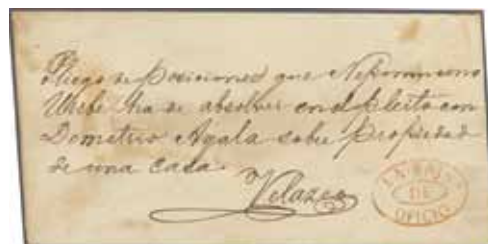 Pliego de Posiciones que Nepomuceno
Uribe ha de absolver en el pleito con
Demetrio Ayala sobre propiedad
de una casa.
Velazco
DE
OFICIO